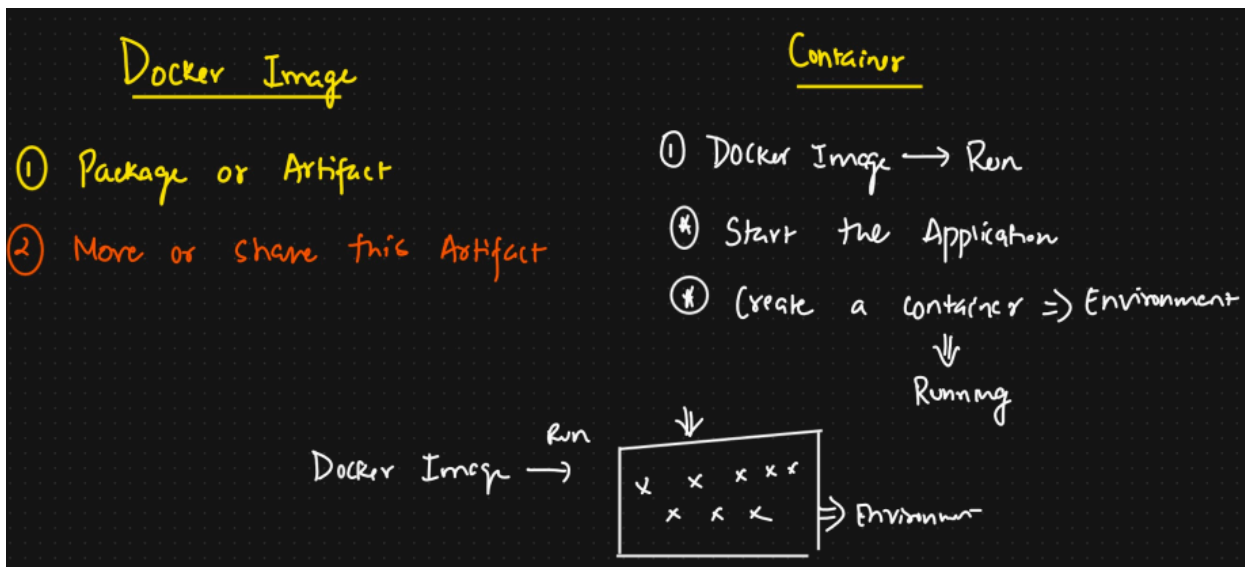 Docker Image
① Package or Artifact
② Move or share this Artifact
Container
① Docker Image → Run
* Start the Application
* Create a container ⇒ Environment
⇓
Running
Docker Image → Run
⇒ Environment